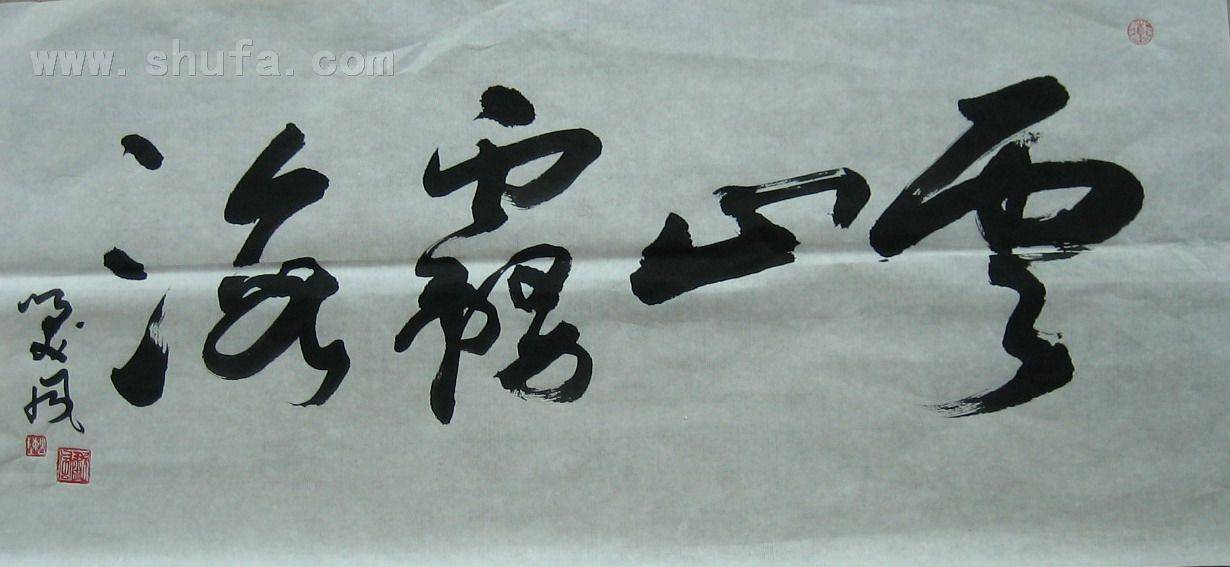 www.shufa.com
雲山霧海